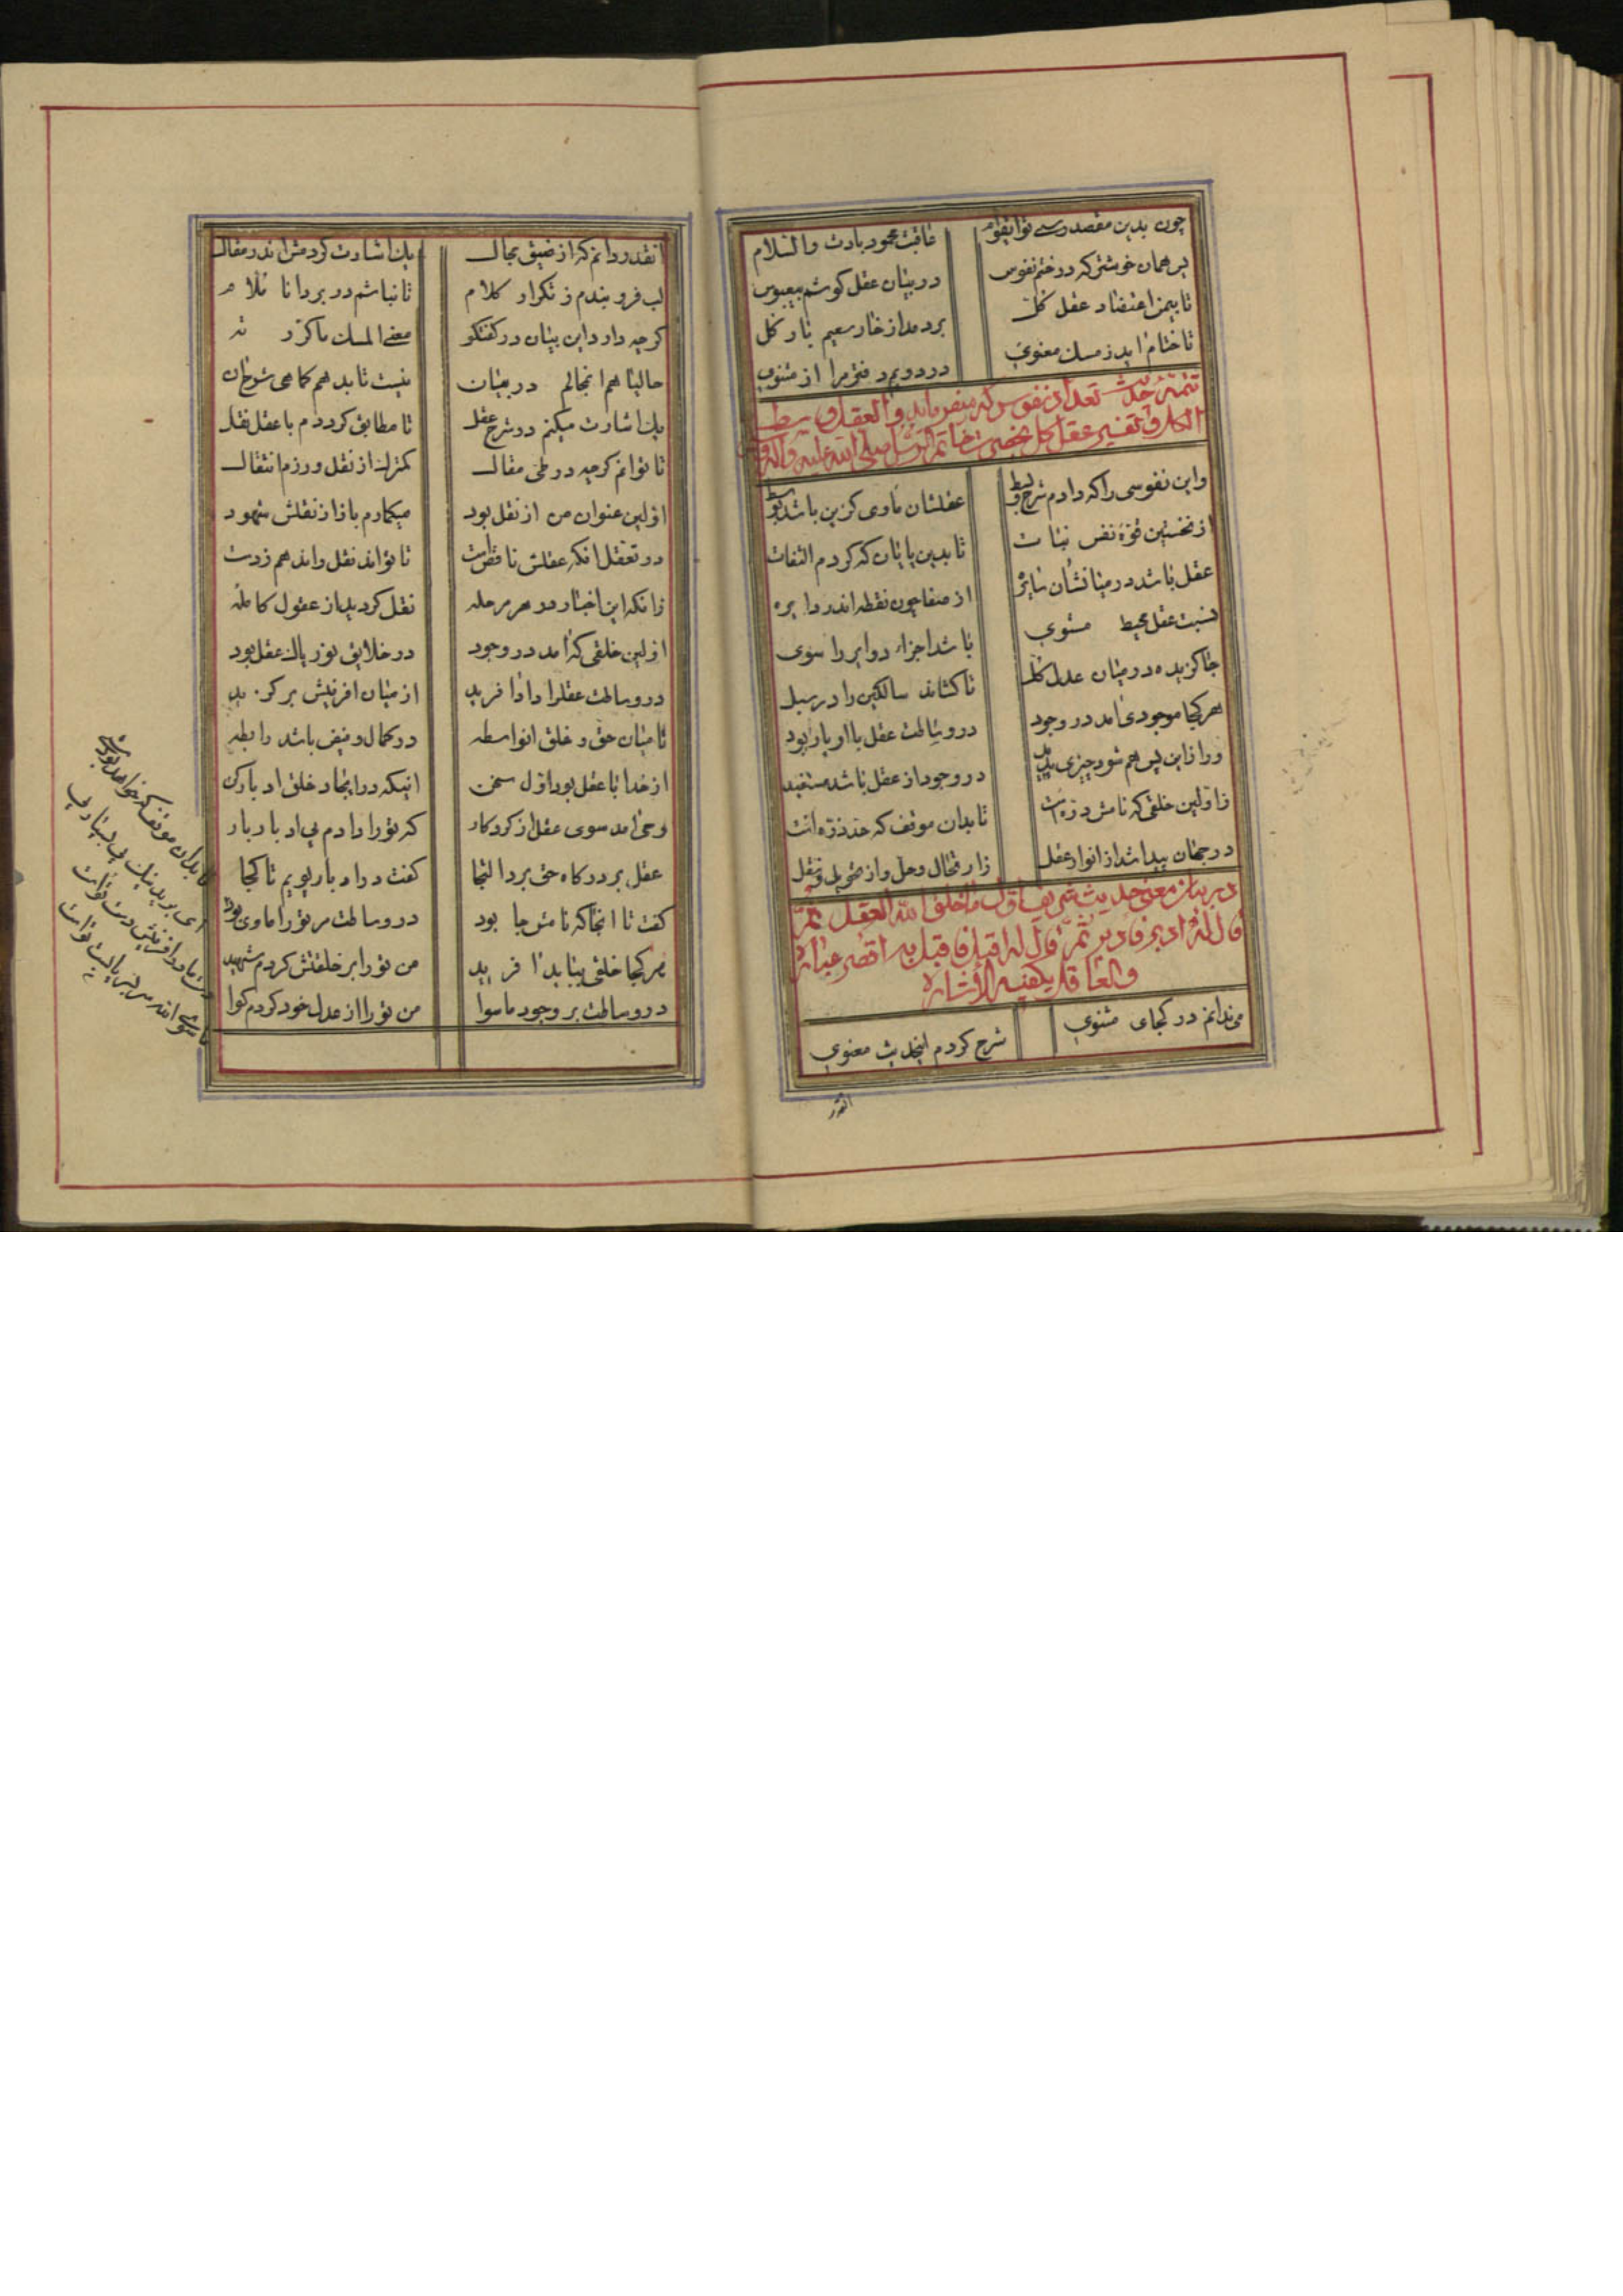 چون بدین مقصد رسی تو ایقوام
عاقبت محمود بادت والسلام
پس همان خوشترکه در ختم نفوس
در بیان عقل کوشم بیعبوس
تا بیمن اعتضاد عقل کل
بردمد از خار سعیم بار کل
تا ختام اید ز مسک معنوی
در دویم دفتر مرا از مثنوی
تتمه حدیث تعداد نفوس که میفرماید والعقل وسط
الکل و تفسیر عقل کل بحضرت خاتم الرسل صلی الله علیه واله
واین نفوسی را که دادم شرح و بسط
عقلشان ماوی کزین باشد بوسط
از نخستین قوه نفس نبات
تا بدین پایان که کردم التفات
عقل باشد در میانشان سایره
از صفا چون نقطه اندر دایره
نسبت عقل محیط مستوی
باشد اجزاء دوایر را سوی
جا کزیده در میان عدل کل
تا کشاند سالکین را در سبل
هر کجا موجودی امد در وجود
در وساطت عقل با او یار بود
ور ازاین پس هم شود چیزی پدید
در وجود از عقل باشد مستفید
ز اولین خلقی که نامش ذره است
تا بدان موقف که حد ذره است
در جهان پیدا شد از انوار عقل
در بیان معنی حدیث شریف اول ما خلق الله العقل ثم
قال له ادبر فادبر ثم قال له اقبل فاقبل به اقصر عباره
والعاقل یکفیه الاشاره
می ندانم در کجای مثنوی
شرح کردم اینحدیث معنوی
انقدر دانم که از ضیق مجال
یک اشارت کردمش اندر مقال
لب فرو بندم ز تکرار کلام
تا نباشم در بر دانا ملام
کرچه دارد این بیان در کفتکو
معنی المسک ماکررته
حالیا هم انمجالم در بیان
نیست تا بدهم کماهی شرح ان
یک اشارت میکنم در شرح عقل
تا مطابق کردم با عقل نقل
تا توانم کرچه در طی مقال
کمترک از نقل ورزم انتقال
اولین عنوان من از نقل بود
میکمارم باز از نقلش شهود
در تعقل انکه عقلش ناقص است
تا تواند نقل راند هم زدست
زانکه این اخبار در هر مرحله
نقل کردید از عقول کامله
اولین خلقی که امد در وجود
در خلایق نور پاک عقل بود
در وساطت عقلرا دادا فرید
از میان افرینش بر کزید
تا میان حق و خلق انواسطه
در کمال و فیض باشد رابطه
از خدا با عقل بود اول سخن
اینکه در ایجاد خلق ادبار کن
وحی امد سوی عقل از کردکار
که تو را دادم پی ادبار بار
عقل بر درکاه حق برد التجا
کفت در ادبار پویم تا کجا
کفت تا انجا که نامش جا بود
در وساطت مر تو را ماوی بود
هر کجا خلقی بیابد افرید
من تو را بر خلقتش کردم شهید
در وساطت بر وجود ماسوا
من تو را از عدل خود کردم کوا